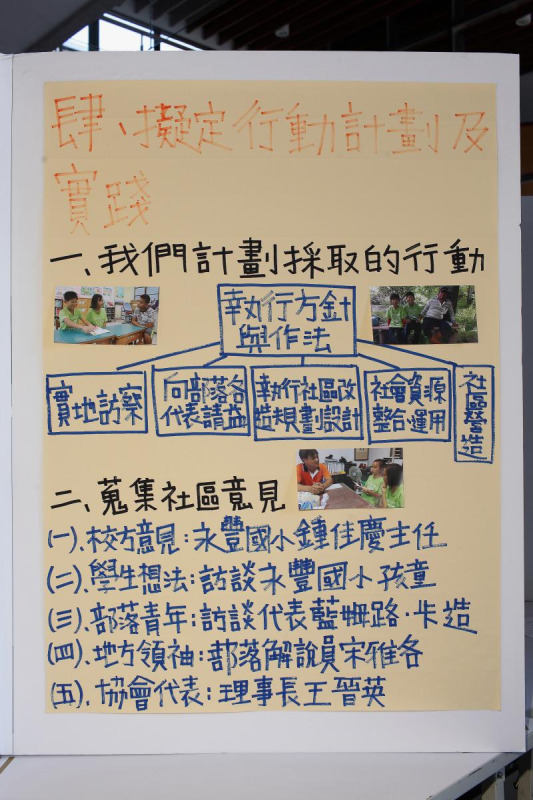 肆、擬定行動計劃及
實踐
一、我們計劃採取的行動
執行方針
與作法
實地訪察
向部落各
代表請益
執行社區改
造規劃設計
社會資源
整合運用
社區營造
二、蒐集社區意見
(一)、校方意見:永豐國小鍾佳慶主任
(二)、學生想法:訪談永豐國小孩童
(三)、部落青年:訪談代表藍姆路·卡造
(四)、地方領袖:部落解說員宋雅各
(五)、協會代表:理事長王晉英